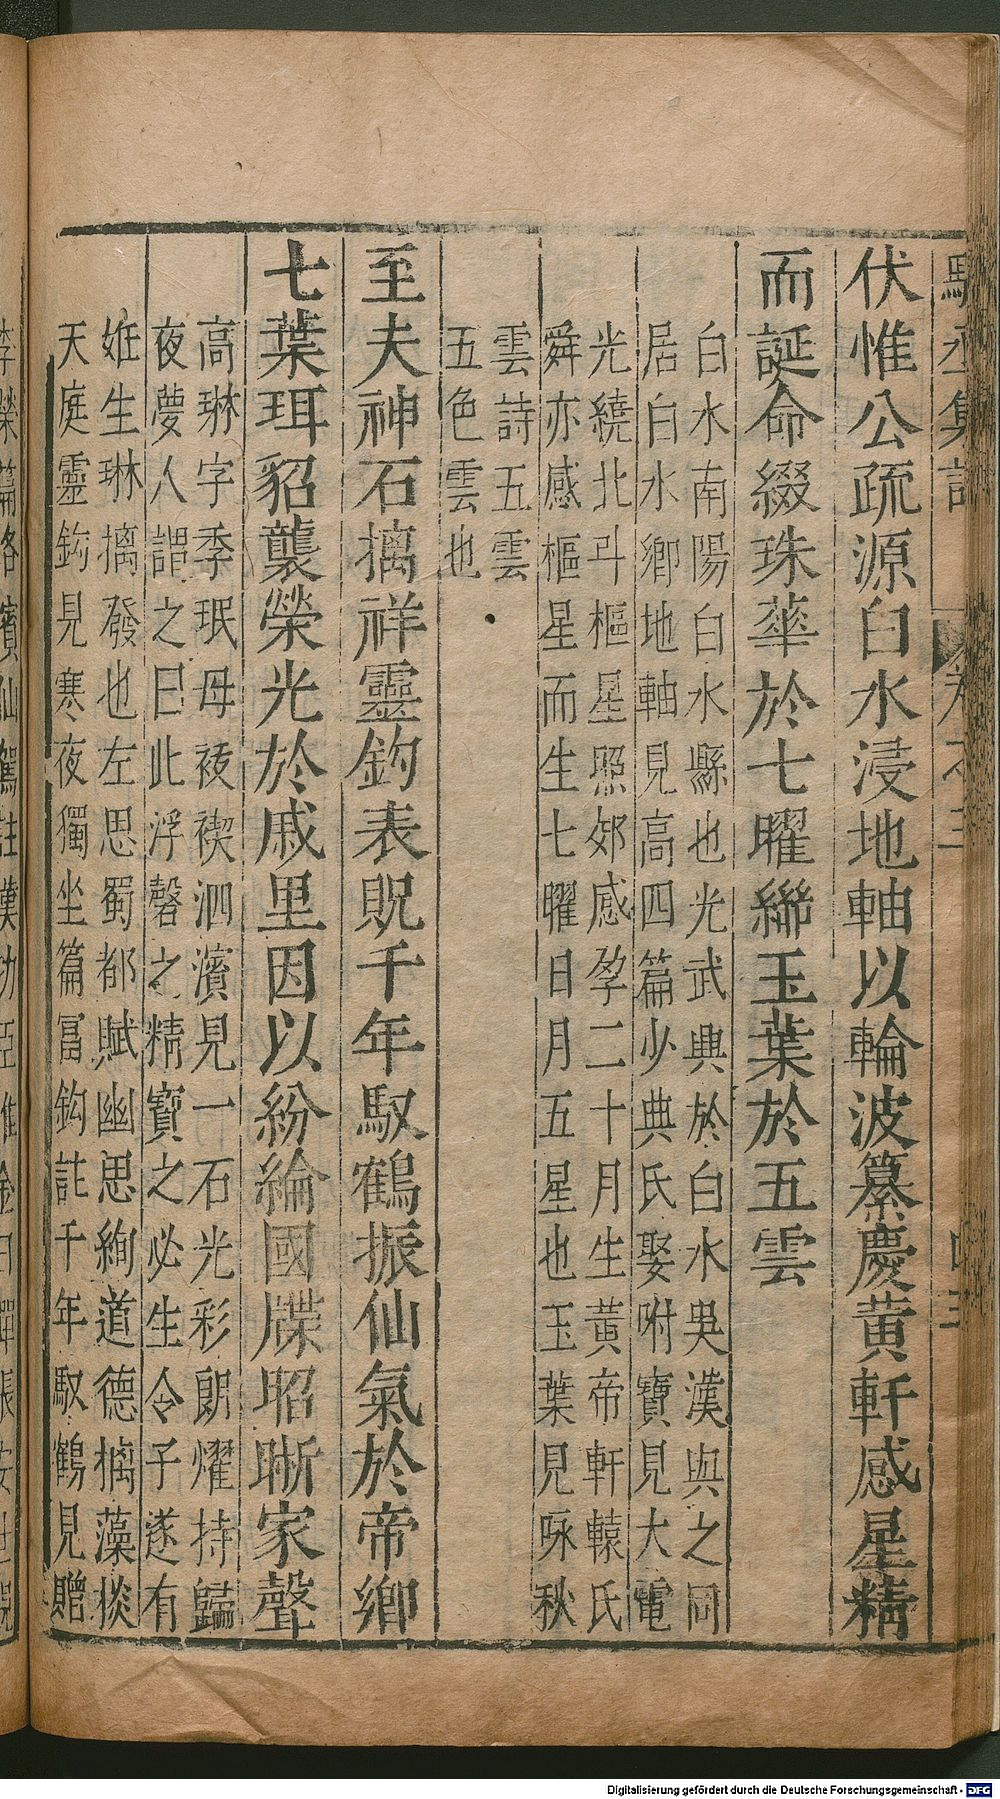 伏惟公疏源白水浸地軸以輪波纂慶黄軒感星精
而誕命綴珠華於七曜綿玉葉於五雲
白水南陽白水縣也光武興於白水吳漢與之同
居白水鄉地軸見高四篇少典氏娶咐寶見大電
光繞北斗樞星照郊感孕二十月生黃帝軒轅氏
舜亦感樞星而生七曜日月五星也玉葉見咏秋
雲詩五雲
五色雲也
至夫神石摛祥靈鈎表貺千年馭鶴振仙氣於帝鄉
七葉珥貂襲榮光於戚里因以紛綸國牒昭晰家聲
高琳字季珉母祓禊泗濱見一石光彩朗燿持歸
夜夢人謂之曰此浮磬之精寶之必生令子遂有
娠生琳摛發也左思蜀都賦幽思絢道德摛藻掞
天庭靈鈎見寒夜獨坐篇冨鈎註千年馭鶴見贈
Digitalisierung gefördert durch die Deutsche Forschungsgemeinschaft - DFG